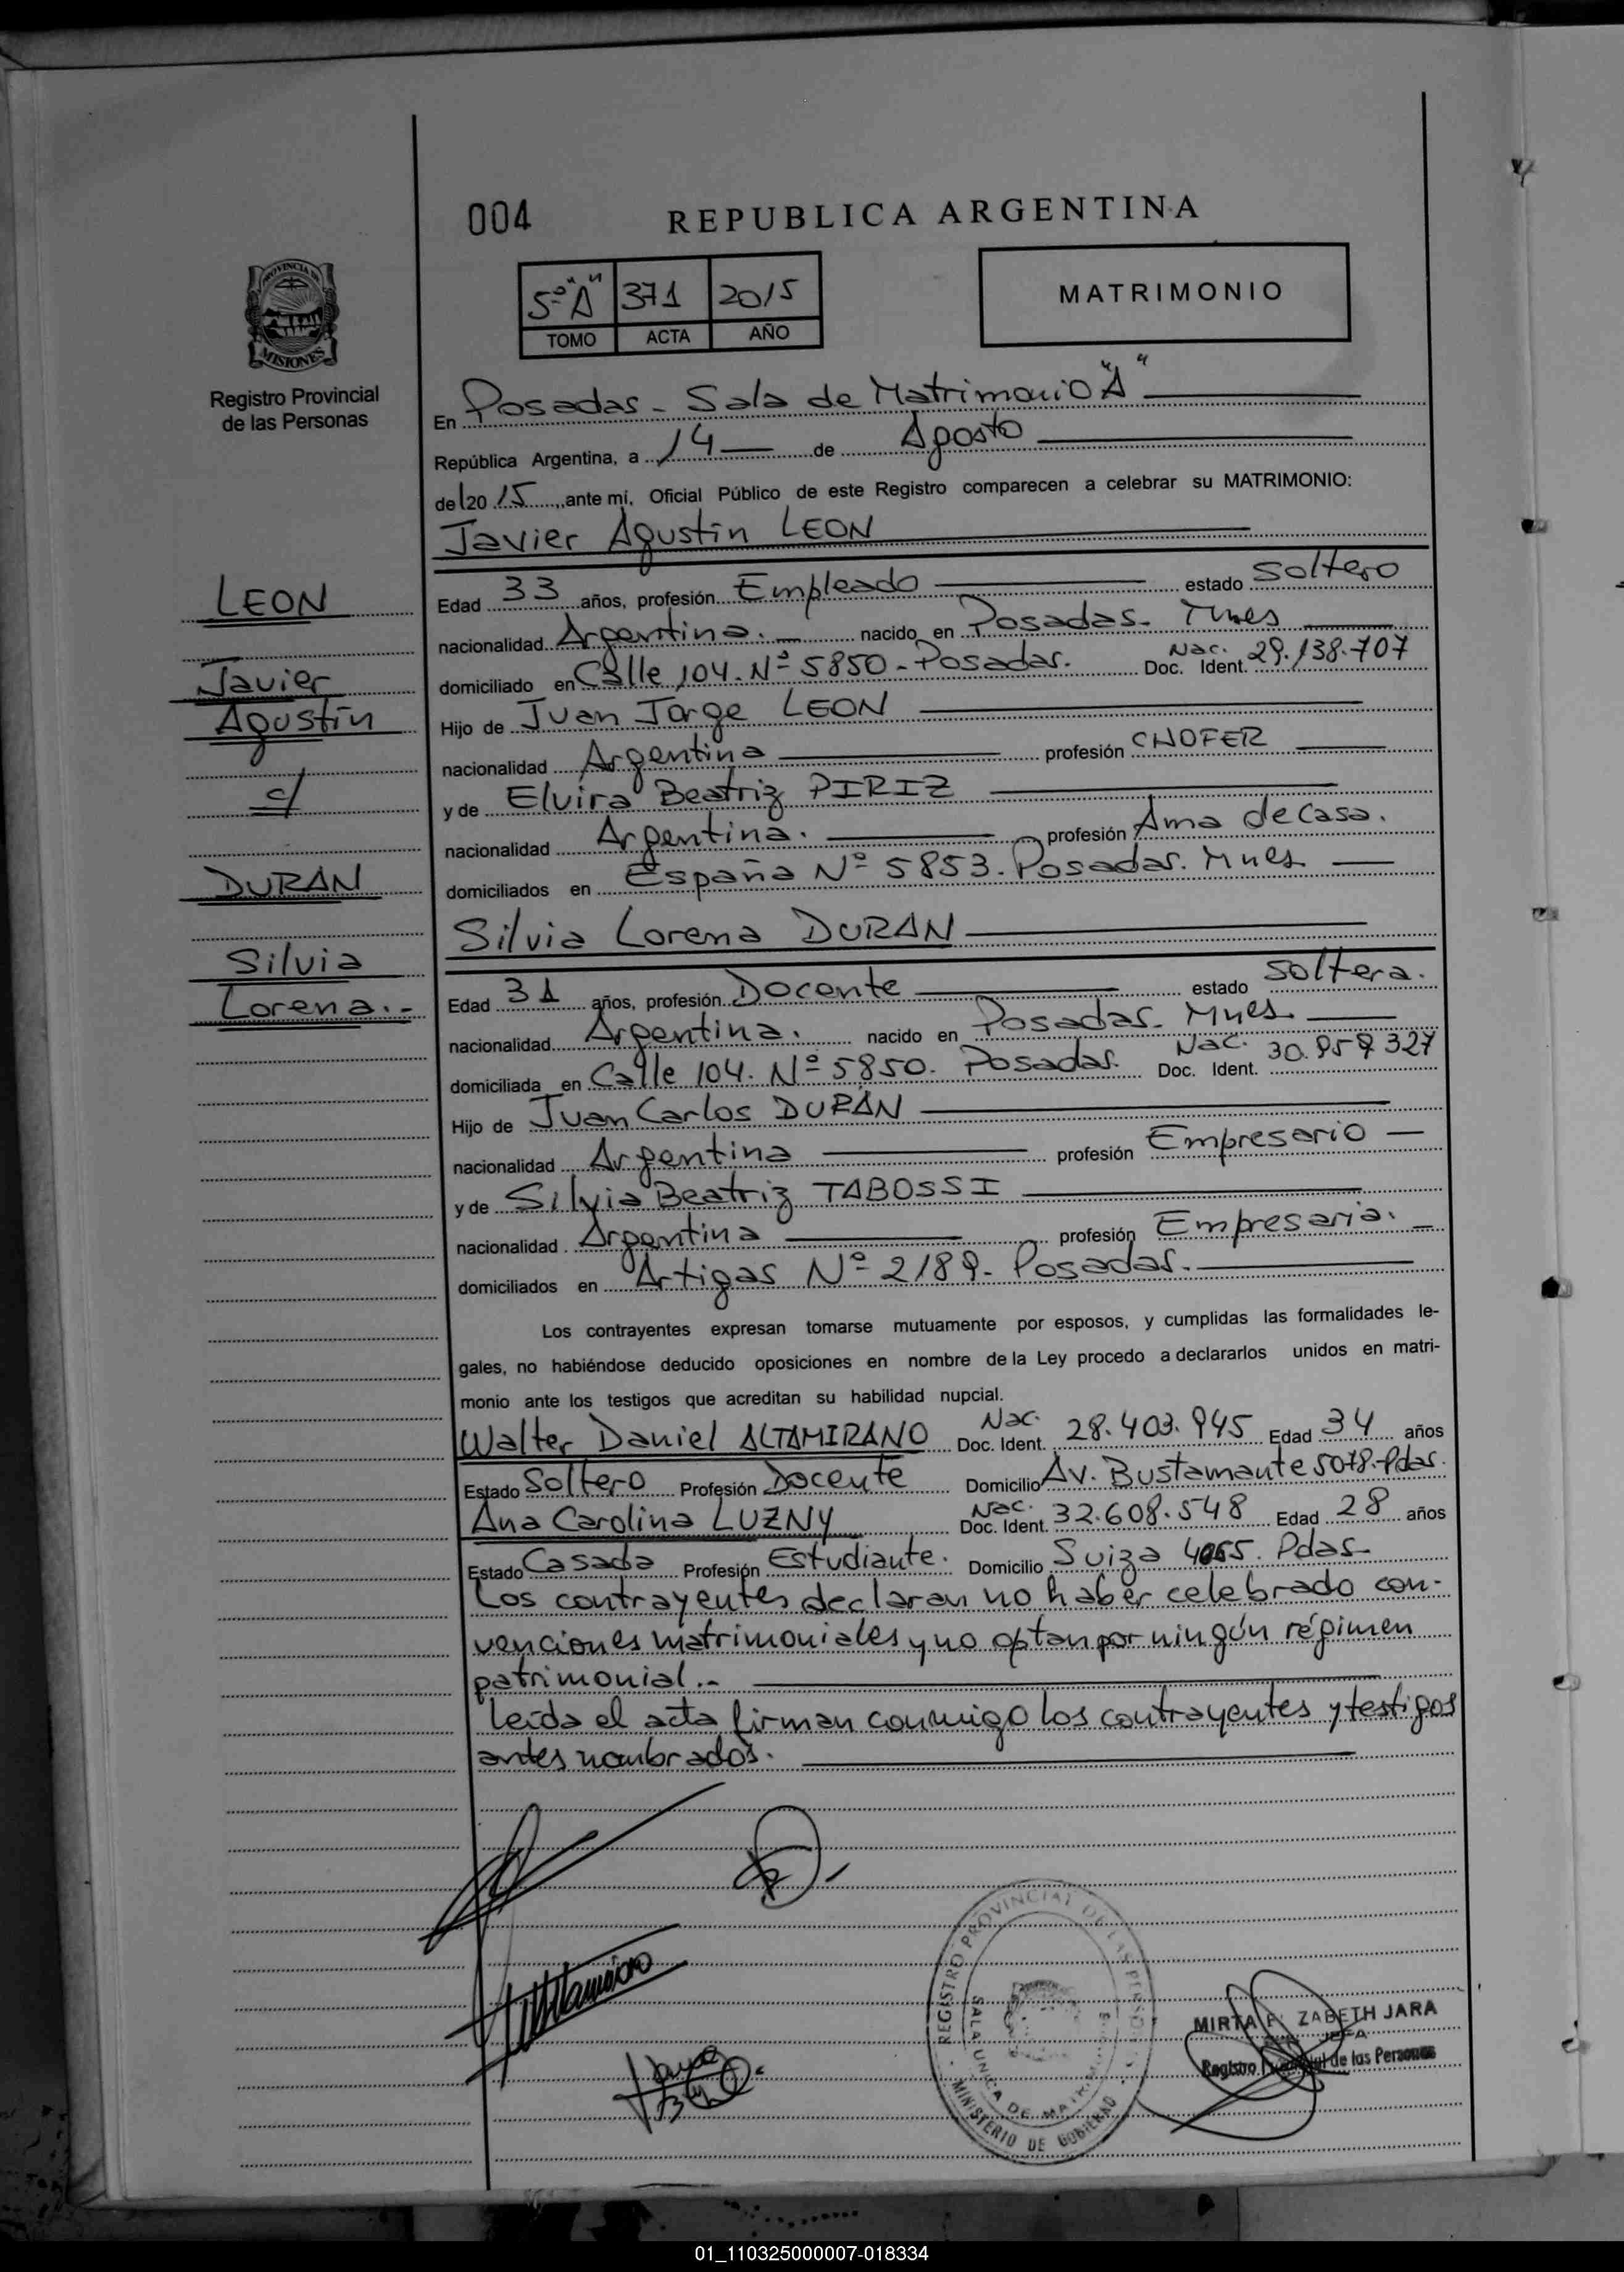 004
REPUBLICA ARGENTINA
5º "A" 371 2015
TOMO ACTA AÑO
MATRIMONIO
PROVINCIA DE
MISIONES
Registro Provincial
de las Personas
En Posadas - Sala de Matrimonio "A"
República Argentina, a 14 de Agosto
del 20 15, ante mí, Oficial Público de este Registro comparecen a celebrar su MATRIMONIO:
Javier Agustín LEON
LEON
Javier
Agustín
c/
DURAN
Silvia
Lorena.-
Edad 33 años, profesión Empleado estado Soltero
nacionalidad Argentina. nacido en Posadas. Mnes
domiciliado en Calle 104. Nº 5850 - Posadas. Nac. Doc. Ident. 29.138.707
Hijo de Juan Jorge LEON
nacionalidad Argentina profesión CHOFER
y de Elvira Beatriz PIRIZ
nacionalidad Argentina. profesión Ama de Casa.
domiciliados en España Nº 5853. Posadas. Mnes
Silvia Lorena DURAN
Edad 31 años, profesión Docente estado Soltera.
nacionalidad Argentina. nacido en Posadas. Mnes
domiciliada en Calle 104. Nº 5850. Posadas. Nac. Doc. Ident. 30.959327
Hijo de Juan Carlos DURÁN
nacionalidad Argentina profesión Empresario
y de Silvia Beatriz TABOSSI
nacionalidad Argentina profesión Empresaria.
domiciliados en Artigas Nº 2189. Posadas.
Los contrayentes expresan tomarse mutuamente por esposos, y cumplidas las formalidades le-
gales, no habiéndose deducido oposiciones en nombre de la Ley procedo a declararlos unidos en matri-
monio ante los testigos que acreditan su habilidad nupcial.
Walter Daniel ALTAMIRANO Nac. Doc. Ident. 28.403.945 Edad 34 años
Estado Soltero Profesión Docente Domicilio Av. Bustamante 5078. Pdas.
Ana Carolina LUZNY Nac. Doc. Ident. 32.608.548 Edad 28 años
Estado Casada Profesión Estudiante. Domicilio Suiza Pdas
Los contrayentes declaran no haber celebrado con-
venciones matrimoniales y no optan por ningún régimen
patrimonial.-
Leída el acta firman conmigo los contrayentes y testigos
antes nombrados.
REGISTRO PROVINCIAL DE LAS
SALA UNICA DE
MINISTERIO DE GOBIERNO
MIRTA ZABETH JARA
JEFA
Registro de las Personas
01_110325000007-018334